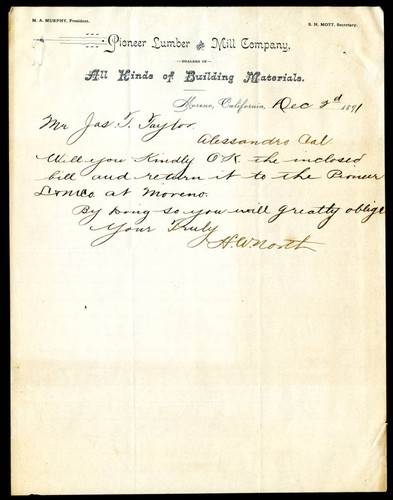 M. A. MURPHY, President.
S. H. MOTT, Secretary.
Pioneer Lumber and Mill Company,
DEALERS IN
All Kinds of Building Materials.
Moreno, California, Dec 2d 1891
Mr Jas. T. Taylor
Alessandro Cal
Will you Kindly O.K. the inclosed
bill and return it to the Pioneer
L & M Co at Moreno.
By doing so you will greatly oblige
Your Truly
H. W. North